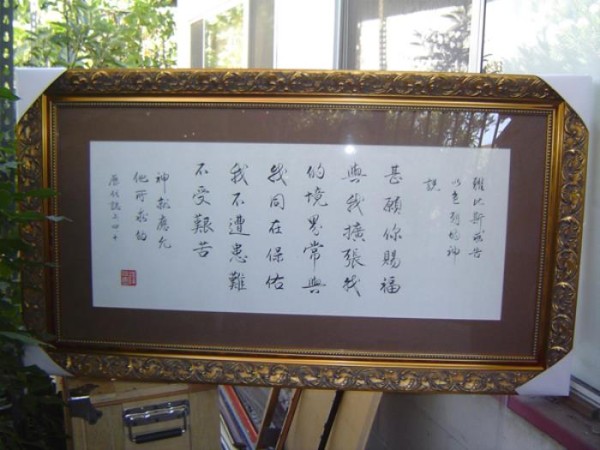 雅比斯求告
以色列的神
說
甚願你賜福
與我擴張我
的境界常與
我同在保佑
我不遭患難
不受艱苦
神就應允
他所求的
歷代誌上四十